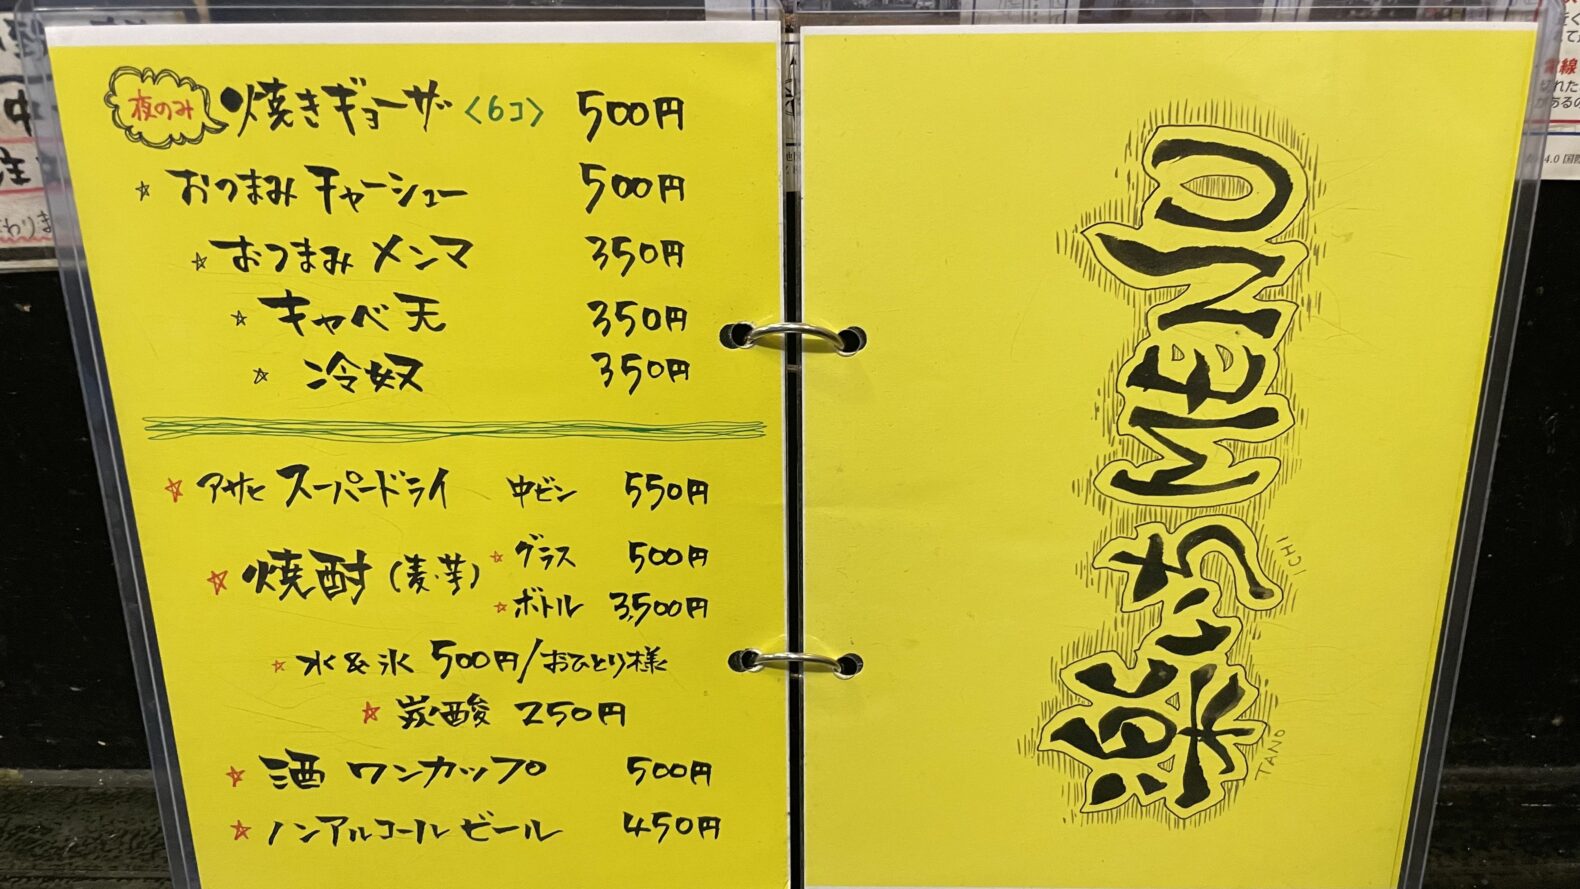 夜のみ 焼きギョーザ <6コ> 500円
☆ おつまみ チャーシュー 500円
☆ おつまみ メンマ 350円
☆ キャベ天 350円
☆ 冷奴 350円
☆ アサヒ スーパードライ 中ビン 550円
☆ 焼酎 (麦・芋) ☆ グラス 500円
☆ ボトル 3,500円
☆ 水&氷 500円/おひとり様
☆ 炭酸 250円
☆ 酒 ワンカップ 500円
☆ ノンアルコールビール 450円
楽いち MENU
TANO
ICHI